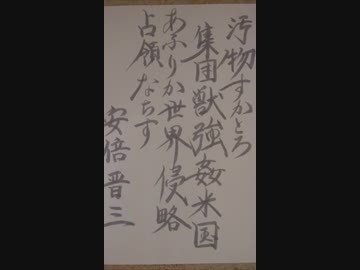 汚物すかとろ
集団獣強姦米国
あふりか世界侵略
占領なちす
安倍晋三